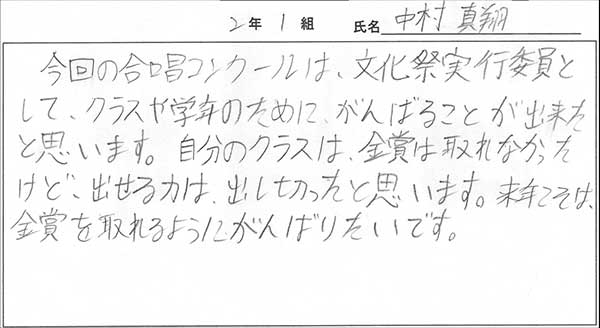 2年 1組 氏名 中村 真翔
今回の合唱コンクールは、文化祭実行委員と
して、クラスや学年のために、がんばることが出来た
と思います。自分のクラスは、金賞は取れなかった
けど、出せる力は、出し切ったと思います。来年こそは、
金賞を取れるようにがんばりたいです。